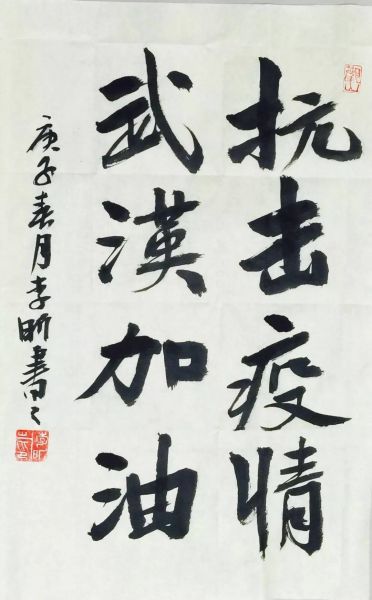 抗击疫情
武漢加油
庚子春月李昕書